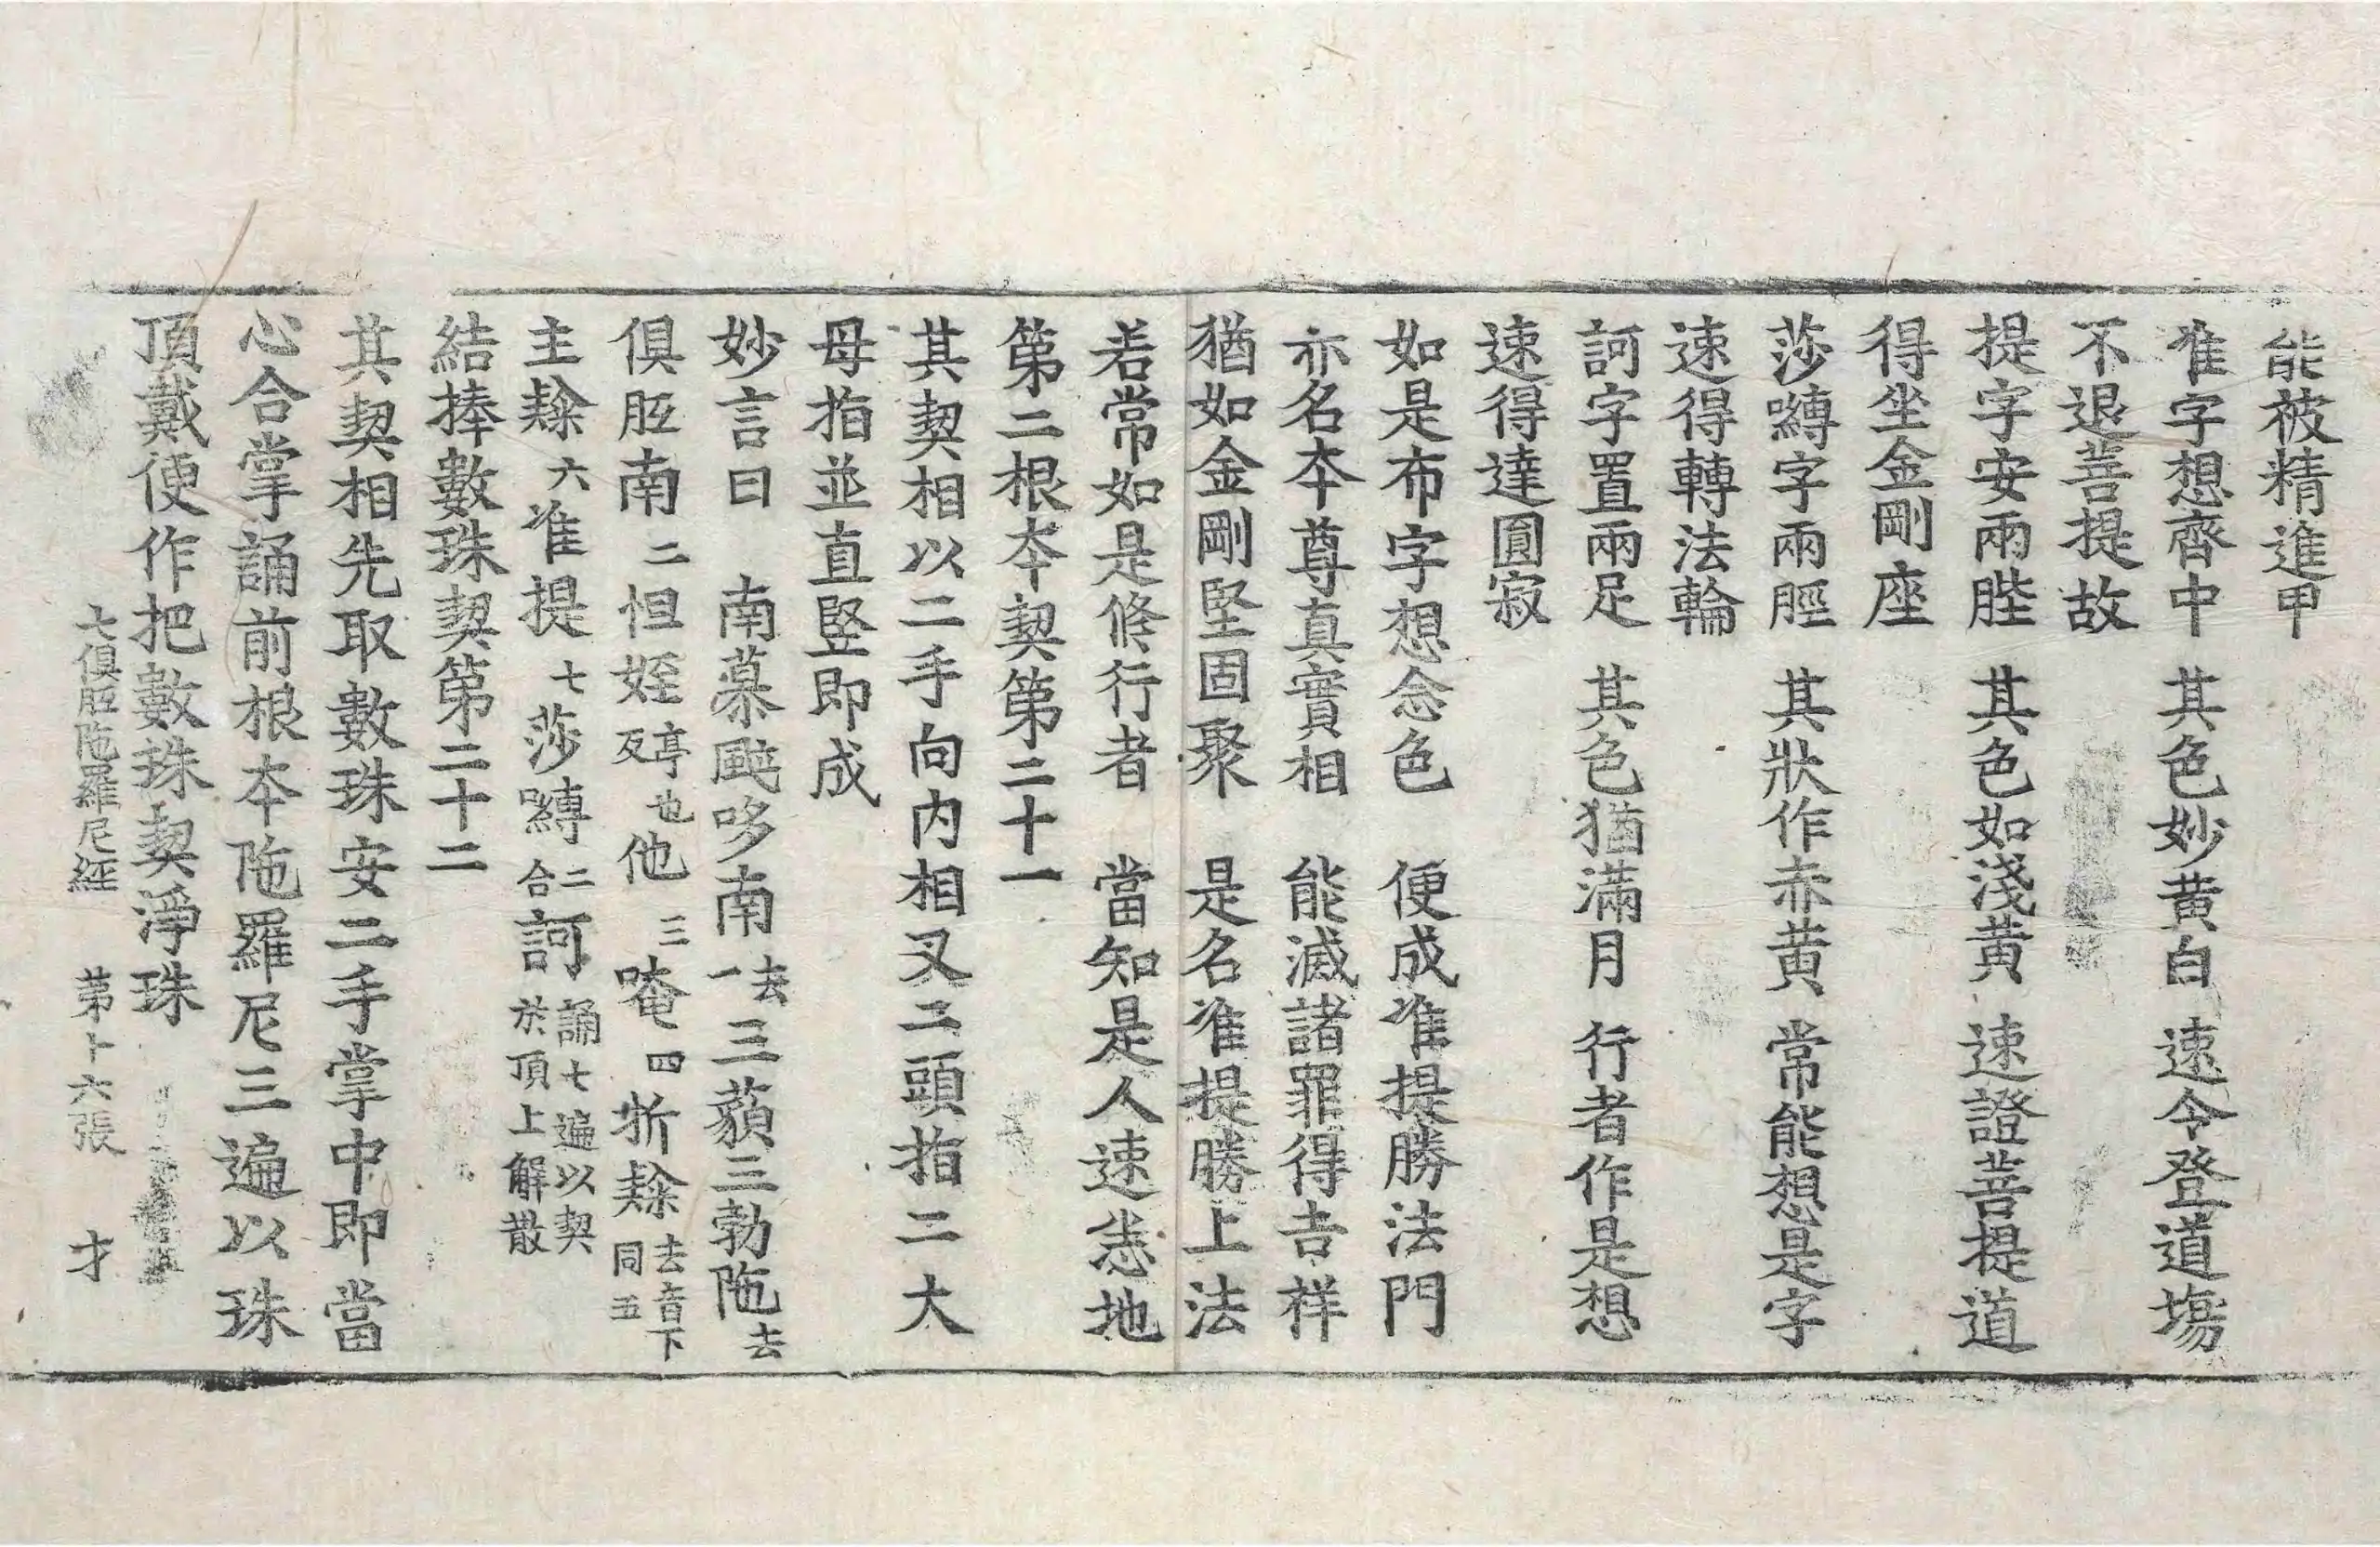 能被精進甲
准字想齊中 其色妙黃白 速令登道塲
不退菩提故
提字安兩䏶 其色如淺黃 速證菩提道
得坐金剛座
莎嚩字兩脛 其狀作赤黃 常能想是字
速得轉法輪
訶字置兩足 其色猶滿月 行者作是想
速得達圓寂
如是布字想念色 便成准提勝法門
亦名本尊真實相 能滅諸罪得吉祥
猶如金剛堅固聚 是名准提勝上法
若常如是修行者 當知是人速悉地
第二根本契第二十一
其契相以二手向内相叉二頭指二大
母指並直竪即成
妙言曰 南慕颭哆南去一三藐三勃陁去
俱胝南二怛姪亭也反他三唵四折㘑去音下同五
主㘑六准提七莎嚩二合訶誦七遍以契於頂上解散
結捧數珠契第二十二
其契相先取數珠安二手掌中即當
心合掌誦前根本陁羅尼三遍以珠
頂戴便作把數珠契淨珠
七俱胝陁羅尼經 第十六張 才